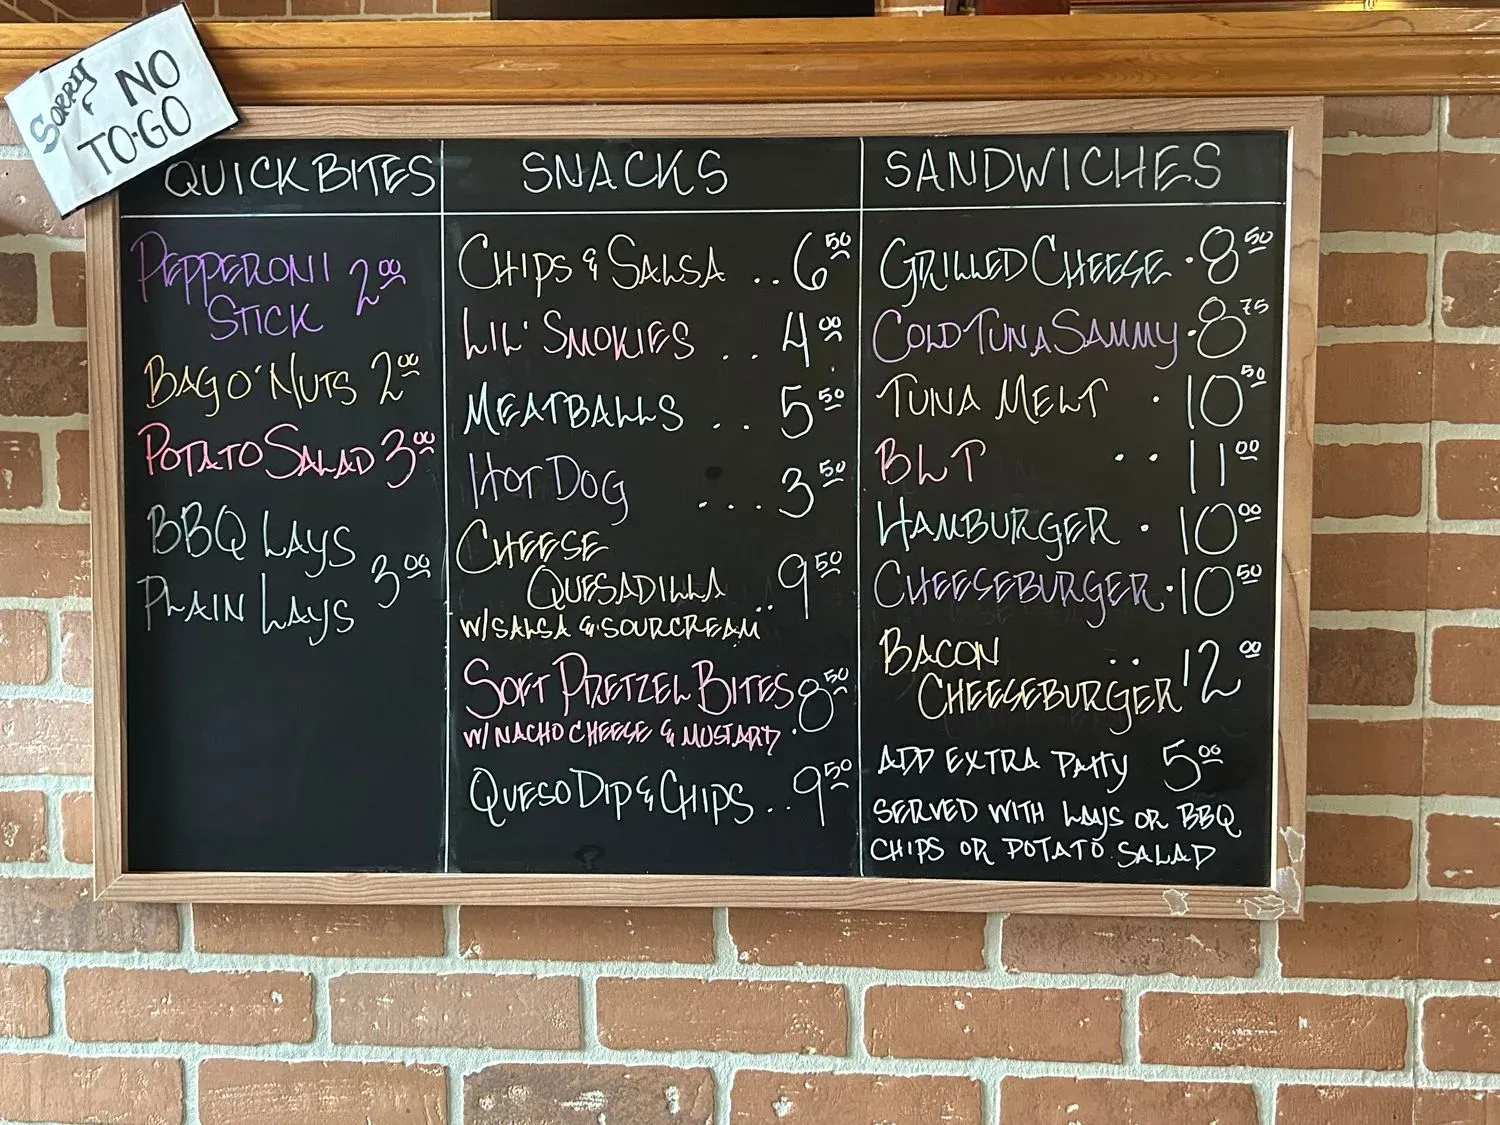 SORRY, NO
TO-GO
QUICK BITES
PEPPERONI
STICK 2.00
BAG O' NUTS 2.00
POTATO SALAD 3.00
BBQ LAYS
PLAIN LAYS 3.00
SNACKS
CHIPS & SALSA .. 6.50
LIL' SMOKIES .. 4.00
MEATBALLS .. 5.50
HOT DOG ... 3.50
CHEESE
QUESADILLA .. 9.50
W/SALSA & SOURCREAM
SOFT PRETZEL BITES . 8.50
W/ NACHO CHEESE & MUSTARD
QUESO DIP & CHIPS .. 9.50
SANDWICHES
GRILLED CHEESE . 8.50
COLD TUNA SAMMY . 8.75
TUNA MELT . 10.50
BLT .. 11.00
HAMBURGER . 10.00
CHEESEBURGER . 10.50
BACON ..
CHEESEBURGER 12.00
ADD EXTRA PATTY 5.00
SERVED WITH LAYS OR BBQ
CHIPS OR POTATO SALAD